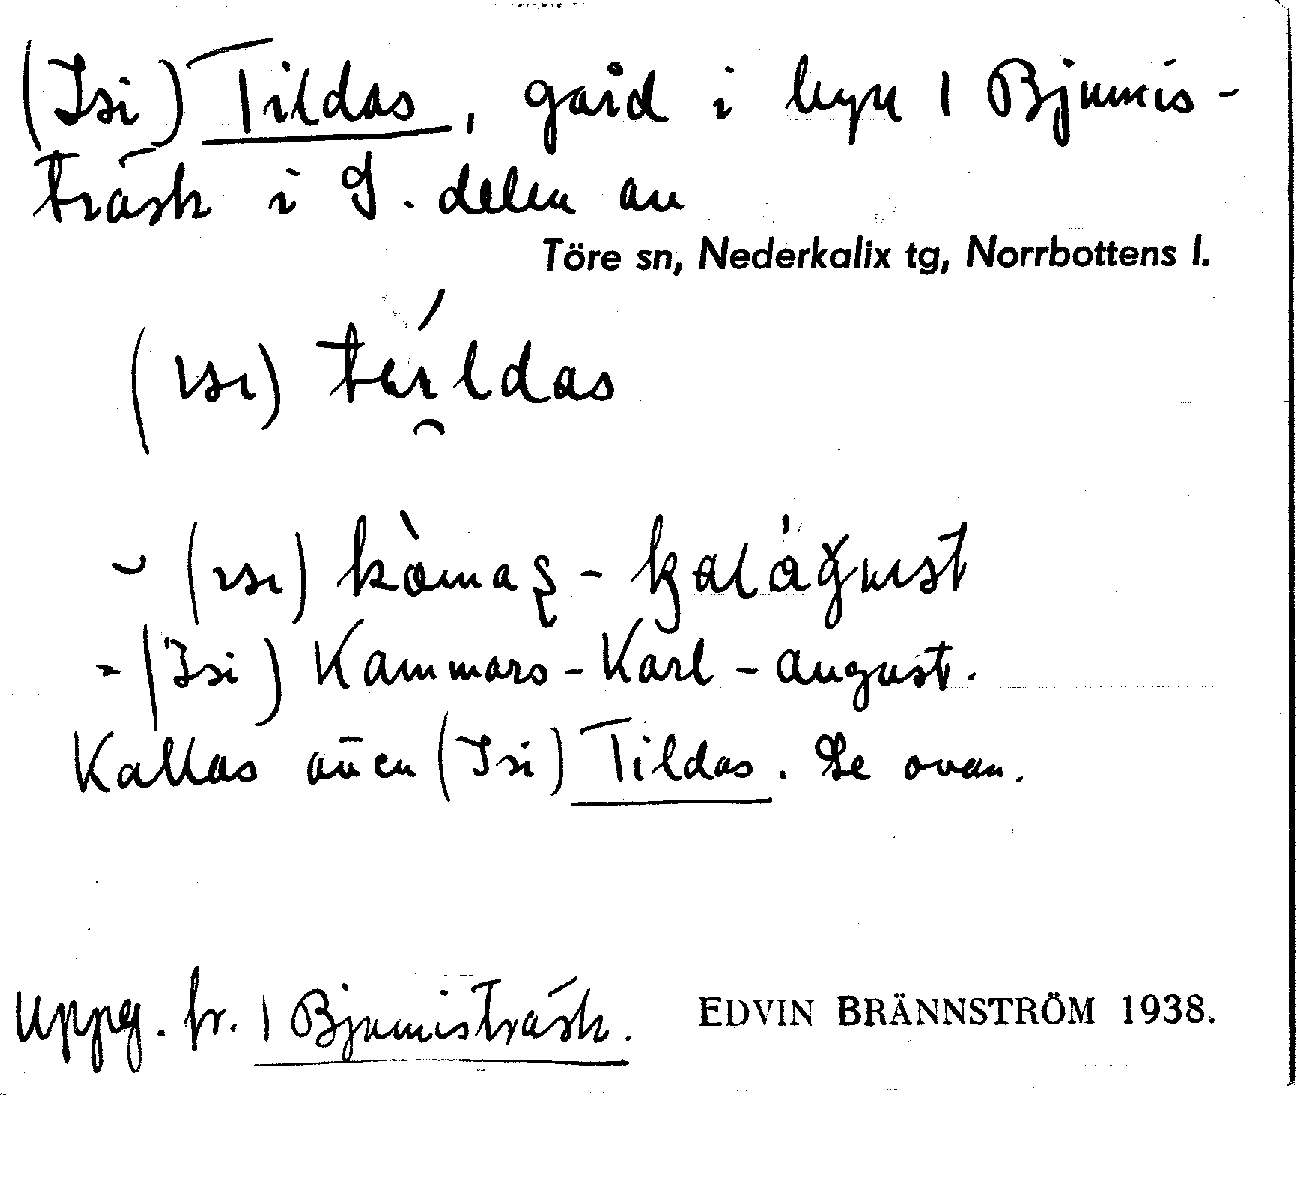 (Isi) Tildas, gård i byn 1 Bjumis-
träsk i S. delen av
Töre sn, Nederkalix tg, Norrbottens l.
(ısı)
(ısı)
= (Isi) Kammars-Karl-August.
Kallas även (Isi) Tildas. Se ovan.
Uppg. fr. 1 Bjumisträsk. EDVIN BRÄNNSTRÖM 1938.